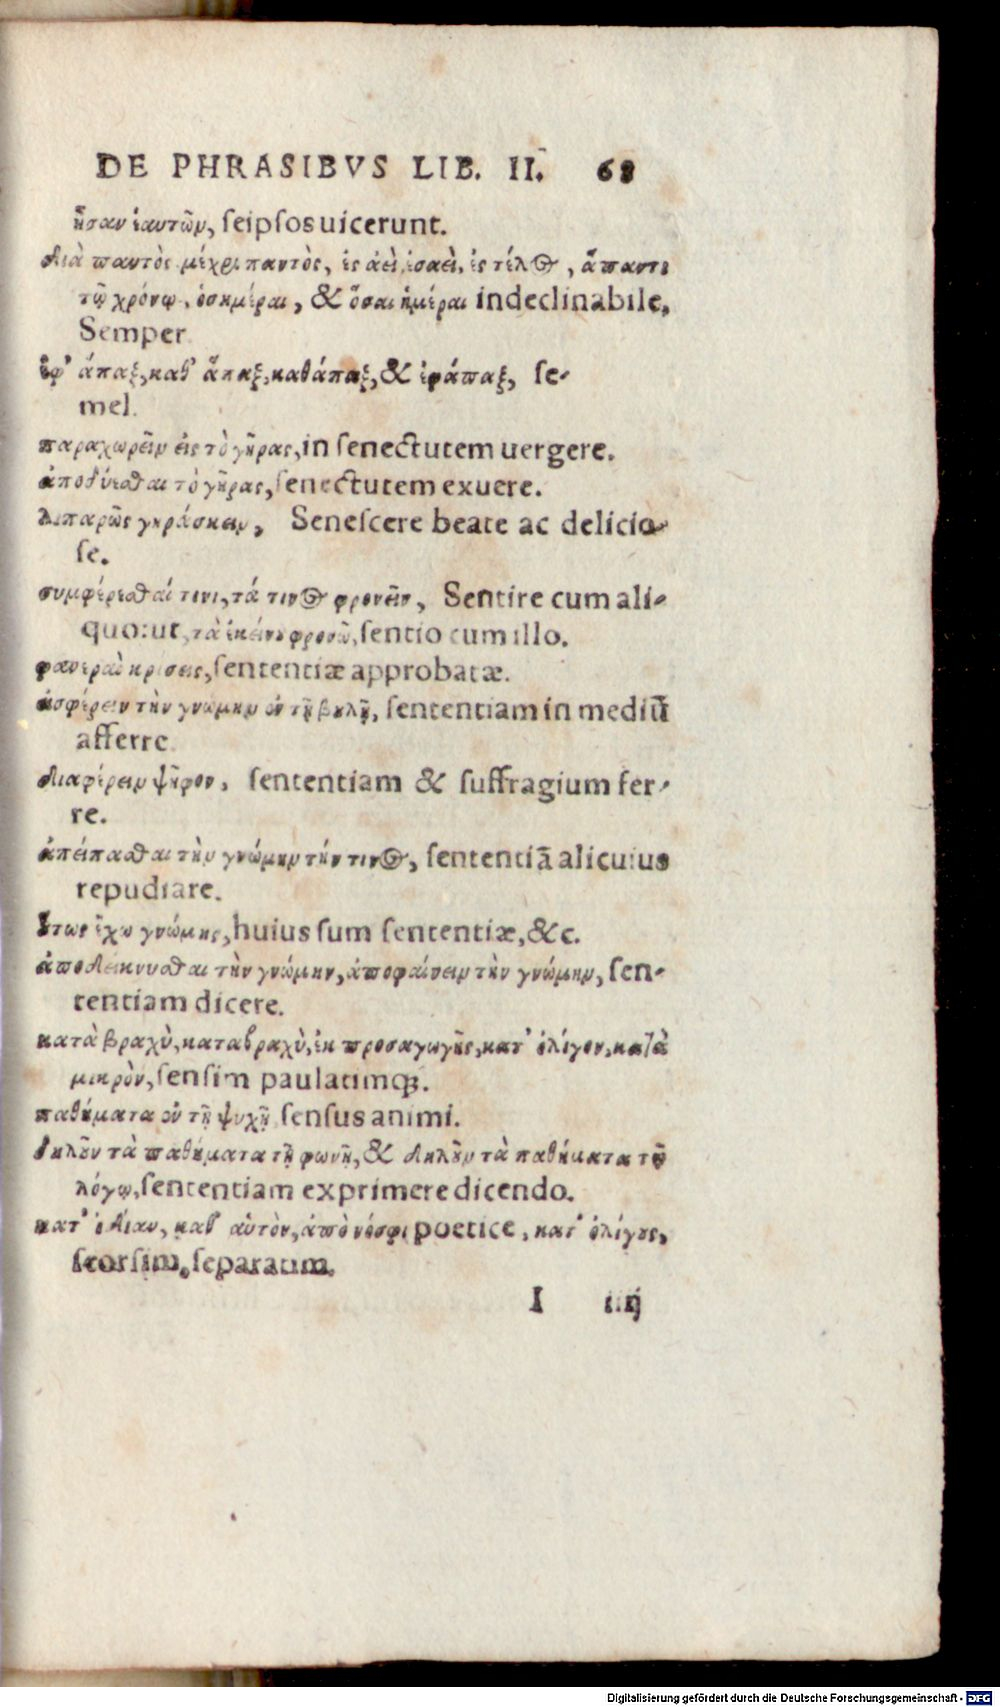 DE PHRASIBVS LIB. II. 68
ἦσαν ἑαυτῶν, ſeipſos uicerunt.
διὰ παντὸς μέχρι παντὸς, ἐς ἀεὶ, ἐσαεὶ, ἐς τέλος, ἅπαντι
τῷ χρόνῳ, ὁσημέραι, & ὅσαι ἡμέραι indeclinabile,
Semper
ἐφ' ἅπαξ, καθ' ἅπαξ, καθάπαξ, & ἐφάπαξ, ſe-
mel.
παραχωρεῖν εἰς τὸ γῆρας, in ſenectutem uergere.
ἀποδύεσθαι τὸ γῆρας, ſenectutem exuere.
λιπαρῶς γηράσκειν, Seneſcere beate ac delicio-
ſe.
συμφέρεσθαί τινι, τά τινος φρονεῖν, Sentire cum ali-
quo: ut, τὰ ἐκείνου φρονῶ, ſentio cum illo.
φανεραὶ κρίσεις, ſententiæ approbatæ.
ἐσφέρειν τὴν γνώμην ἐν τῇ βουλῇ, ſententiam in mediũ
afferre
διαφέρειν ψῆφον, ſententiam & ſuffragium fer-
re.
ἀπείπασθαι τὴν γνώμην τήν τινος, ſententiã alicuius
repudiare.
οὕτως ἔχω γνώμης, huius ſum ſententiæ, &c.
ἀποδείκνυσθαι τὴν γνώμην, ἀποφαίνειν τὴν γνώμην, ſen-
tentiam dicere.
κατὰ βραχὺ, καταβραχὺ, ἐκ προσαγωγῆς, κατ' ὀλίγον, κατὰ
μικρὸν, ſenſim paulatimq;.
παθήματα ἐν τῇ ψυχῇ ſenſus animi.
δηλοῦν τὰ παθήματα τῇ φωνῇ, & δηλοῦν τὰ παθήματα τῷ
λόγῳ, ſententiam exprimere dicendo.
κατ' ἰδίαν, καθ' αὑτὸν, ἀπὸ νόσφι poetice, κατ' ὀλίγους,
ſeorſim, ſeparatim.
I iiij
Digitalisierung gefördert durch die Deutsche Forschungsgemeinschaft - DFG